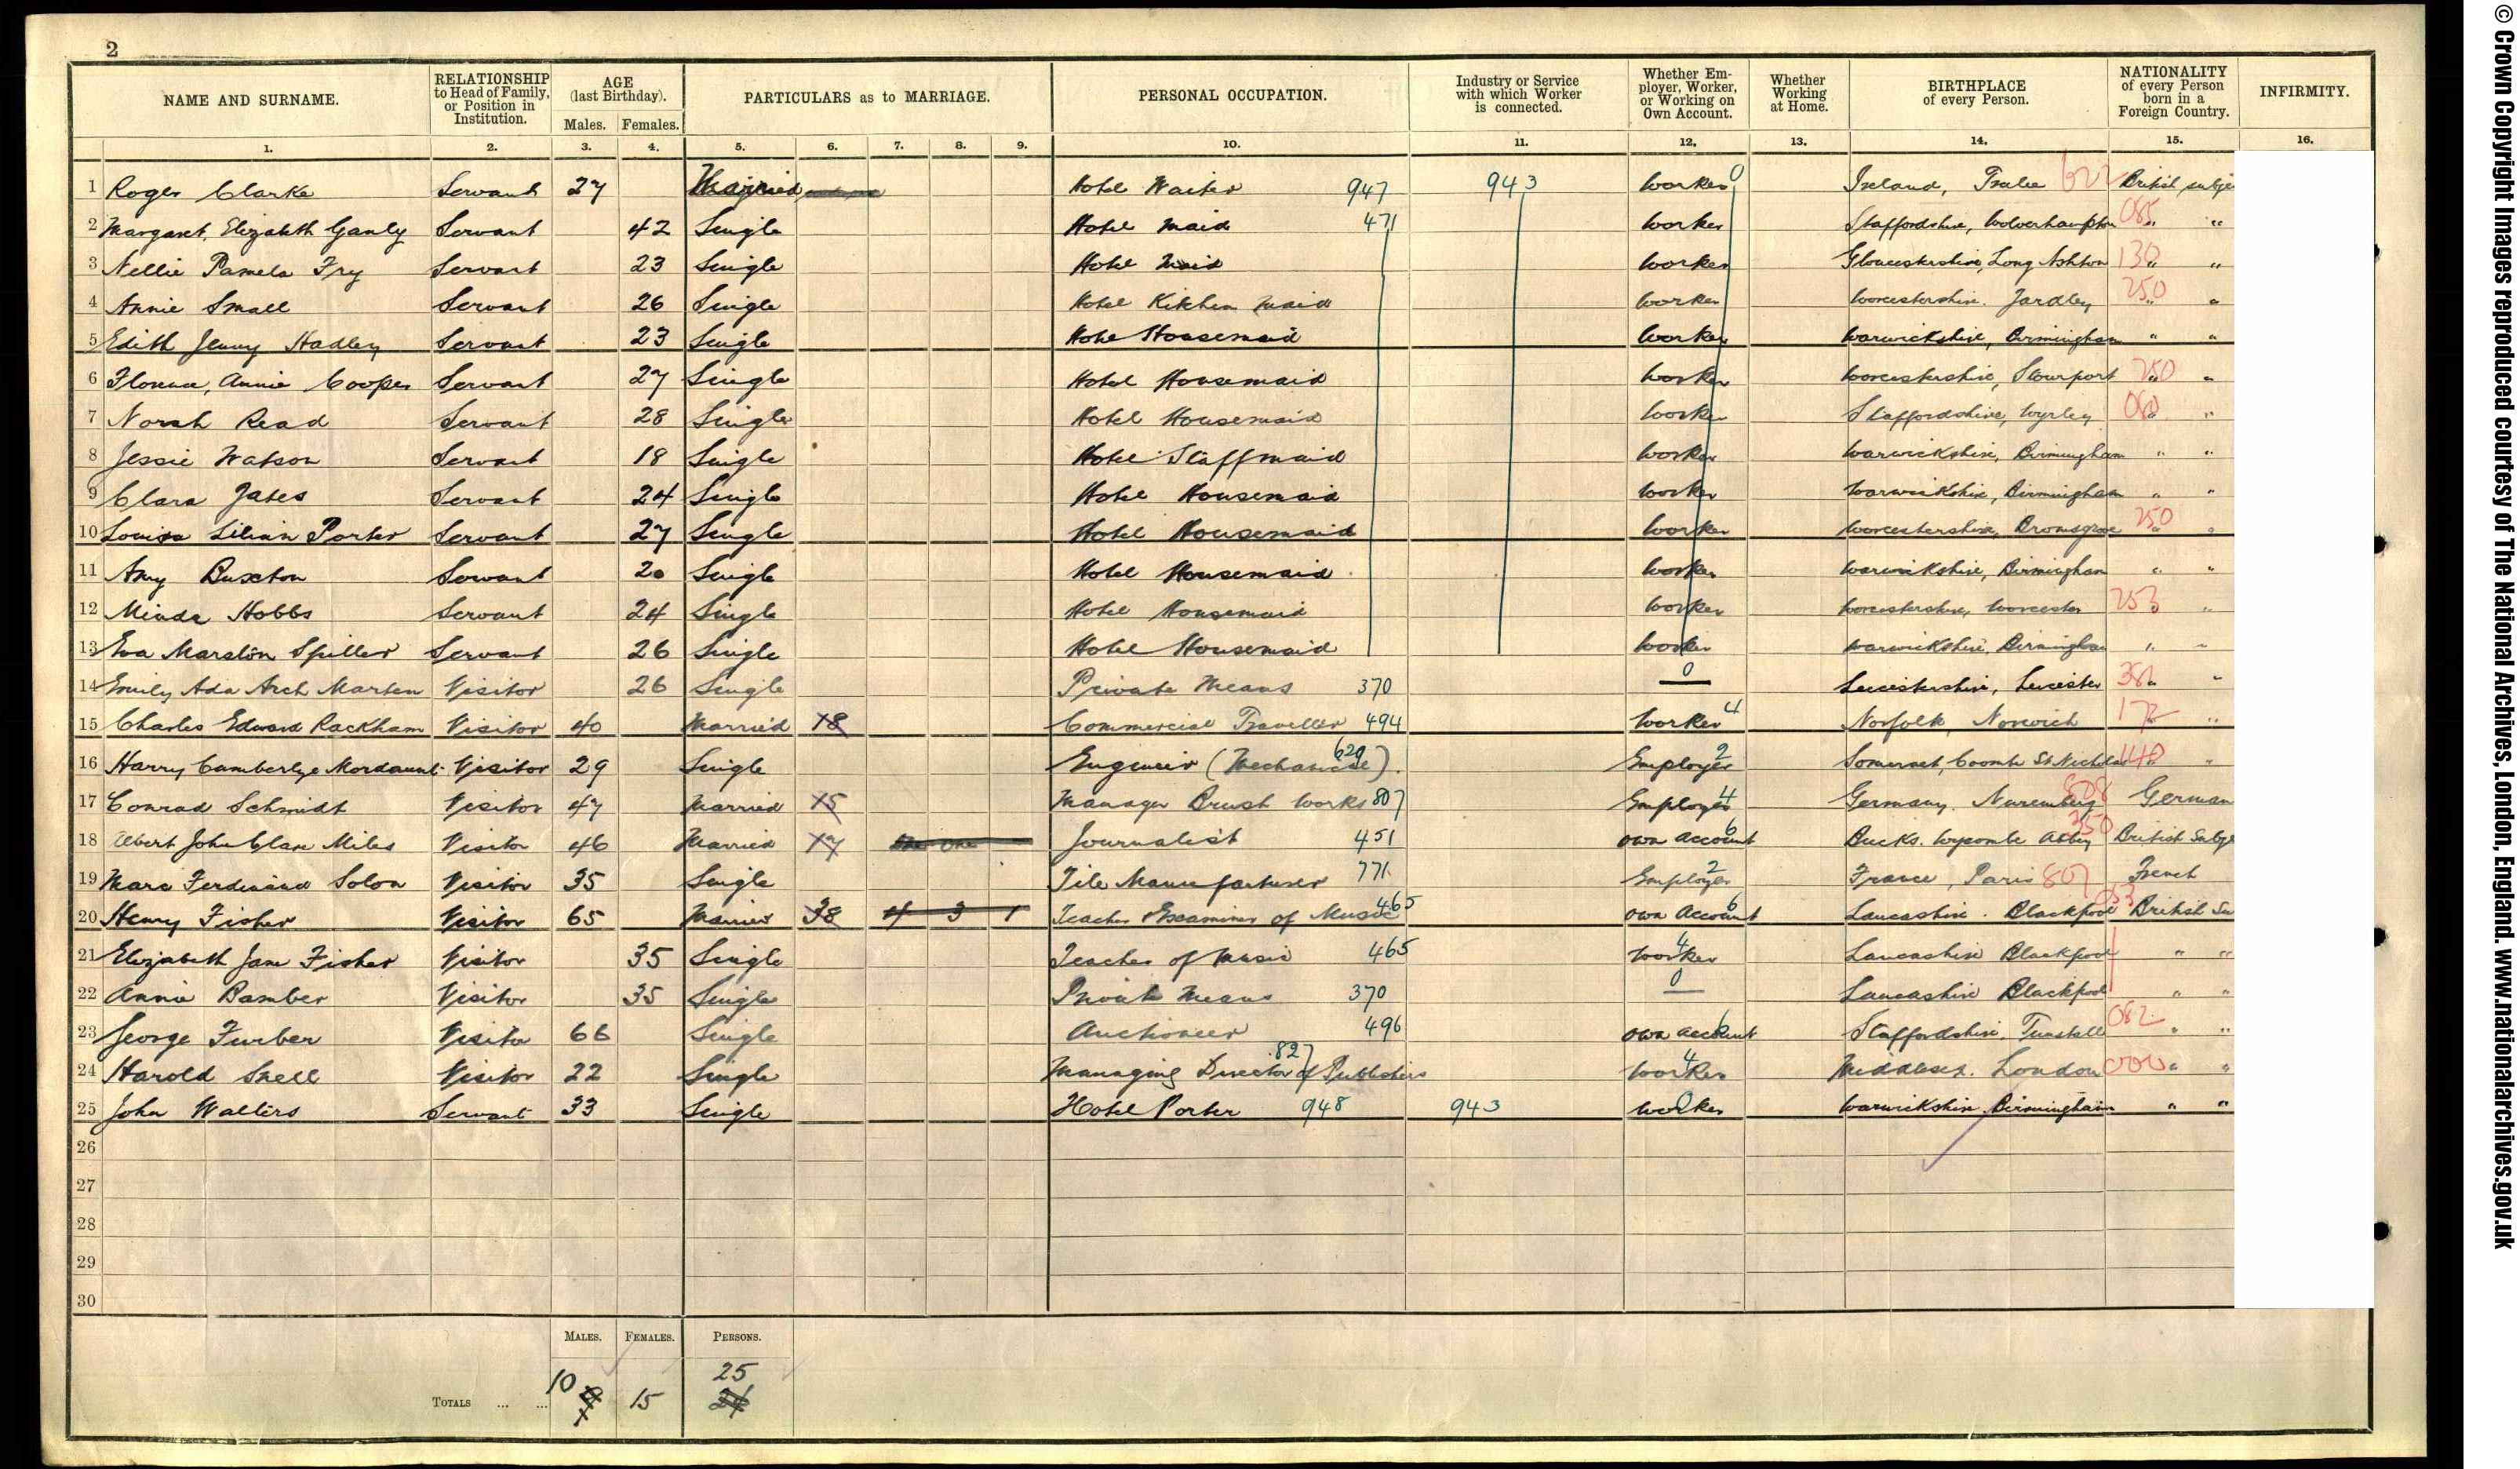 2
NAME AND SURNAME. RELATIONSHIP to Head of Family, or Position in Institution. AGE (last Birthday). Males. Females. PARTICULARS as to MARRIAGE. PERSONAL OCCUPATION. Industry or Service with which Worker is connected. Whether Employer, Worker, or Working on Own Account. Whether Working at Home. BIRTHPLACE of every Person. NATIONALITY of every Person born in a Foreign Country. INFIRMITY.
1. 2. 3. 4. 5. 6. 7. 8. 9. 10. 11. 12. 13. 14. 15. 16.
1 Roger Clarke Servant 27 Married Hotel Waiter 947 943 Worker 0 Ireland, Tralee 622 British subje
2 Margaret, Elizabeth Ganly Servant 42 Single Hotel Maid 471 Worker Staffordshire, Wolverhampton 085 " "
3 Nellie Pamela Fry Servant 23 Single Hotel Maid Worker Gloucestershire, Long Ashton 130 " "
4 Annie Small Servant 26 Single Hotel Kitchen Maid Worker Worcestershire. Yardley 250 " "
5 Edith Jenny Hadley Servant 23 Single Hotel Housemaid Worker Warwickshire, Birmingham " "
6 Florence, Annie Cooper Servant 27 Single Hotel Housemaid Worker Worcestershire, Stourport 250 " "
7 Norah Read Servant 28 Single Hotel Housemaid Worker Staffordshire, Wyrley 080 " "
8 Jessie Watson Servant 18 Single Hotel Staffmaid Worker Warwickshire, Birmingham " "
9 Clara Yates Servant 24 Single Hotel Housemaid Worker Warwickshire, Birmingham " "
10 Louisa Lilian Porter Servant 27 Single Hotel Housemaid Worker Worcestershire, Bromsgrove 250 " "
11 Amy Buxton Servant 20 Single Hotel Housemaid Worker Warwickshire, Birmingham " "
12 Hobbs Servant 24 Single Hotel Housemaid Worker Worcestershire, Worcester 253 " "
13 Eva Marston Spiller Servant 26 Single Hotel Housemaid Worker Warwickshire, Birmingham " "
14 Emily Ada Arch Marten Visitor 26 Single Private Means 370 0 — Leicestershire, Leicester 382 " "
15 Charles Edward Rackham Visitor 40 Married 18 Commercial Traveller 494 Worker 4 Norfolk, Norwich 172 " "
16 Harry Mordaunt Visitor 29 Single Engineer (Mechanical). 620 Employer 2 Somerset, Coombe St Nicholas 140 " "
17 Conrad Schmidt Visitor 47 Married 15 Manager Brush Works 807 Employer 4 Germany. Nuremberg 808 German
18 Albert John Clare Miles Visitor 46 Married 17 One Journalist 451 own account 6 Bucks. Wycombe Abbey 350 British Subje
19 Marc Ferdinand Solon Visitor 35 Single Tile Manufacturer 771 Employer 2 France, Paris 807 French
20 Henry Fisher Visitor 65 Married 38 4 3 1 Teacher & Examiner of Music 465 own account 6 Lancashire. Blackpool 053 British Su
21 Elizabeth Jane Fisher Visitor 35 Single Teacher of Music 465 Worker 4 Lancashire Blackpool " "
22 Annie Bamber Visitor 35 Single Private Means 370 0 — Lancashire Blackpool " "
23 George Furber Visitor 66 Single Auctioneer 496 own account 6 Staffordshire, Tunstall 082 " "
24 Harold Snell Visitor 22 Single Managing Director of Publishers 827 Worker 4 Middlesex. London 000 " "
25 John Walters Servant 33 Single Hotel Porter 948 943 Worker 0 Warwickshire Birmingham " "
26
27
28
29
30
MALES. FEMALES. PERSONS.
25
TOTALS ... ... 10 9 15 24
© Crown Copyright Images reproduced courtesy of The National Archives, London, England. www.nationalarchives.gov.uk